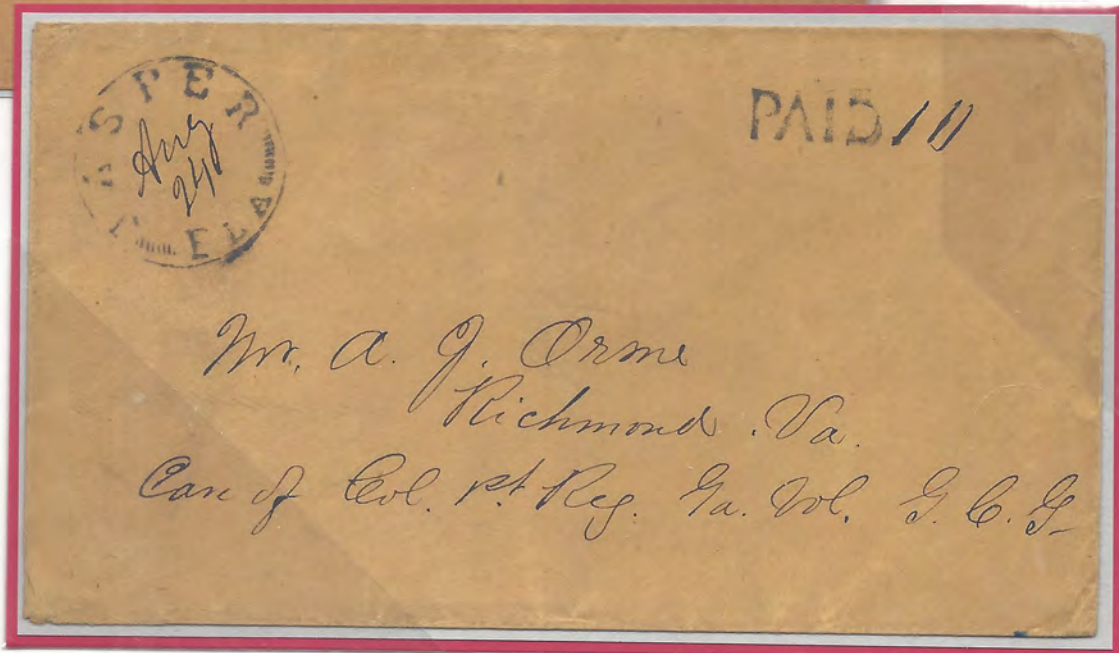 JASPER
FLA
Aug
24
PAID 10
Mr. A. J. Orme
Richmond. Va.
Care of Col. 1st. Reg. Ga. Vol. G. C. G